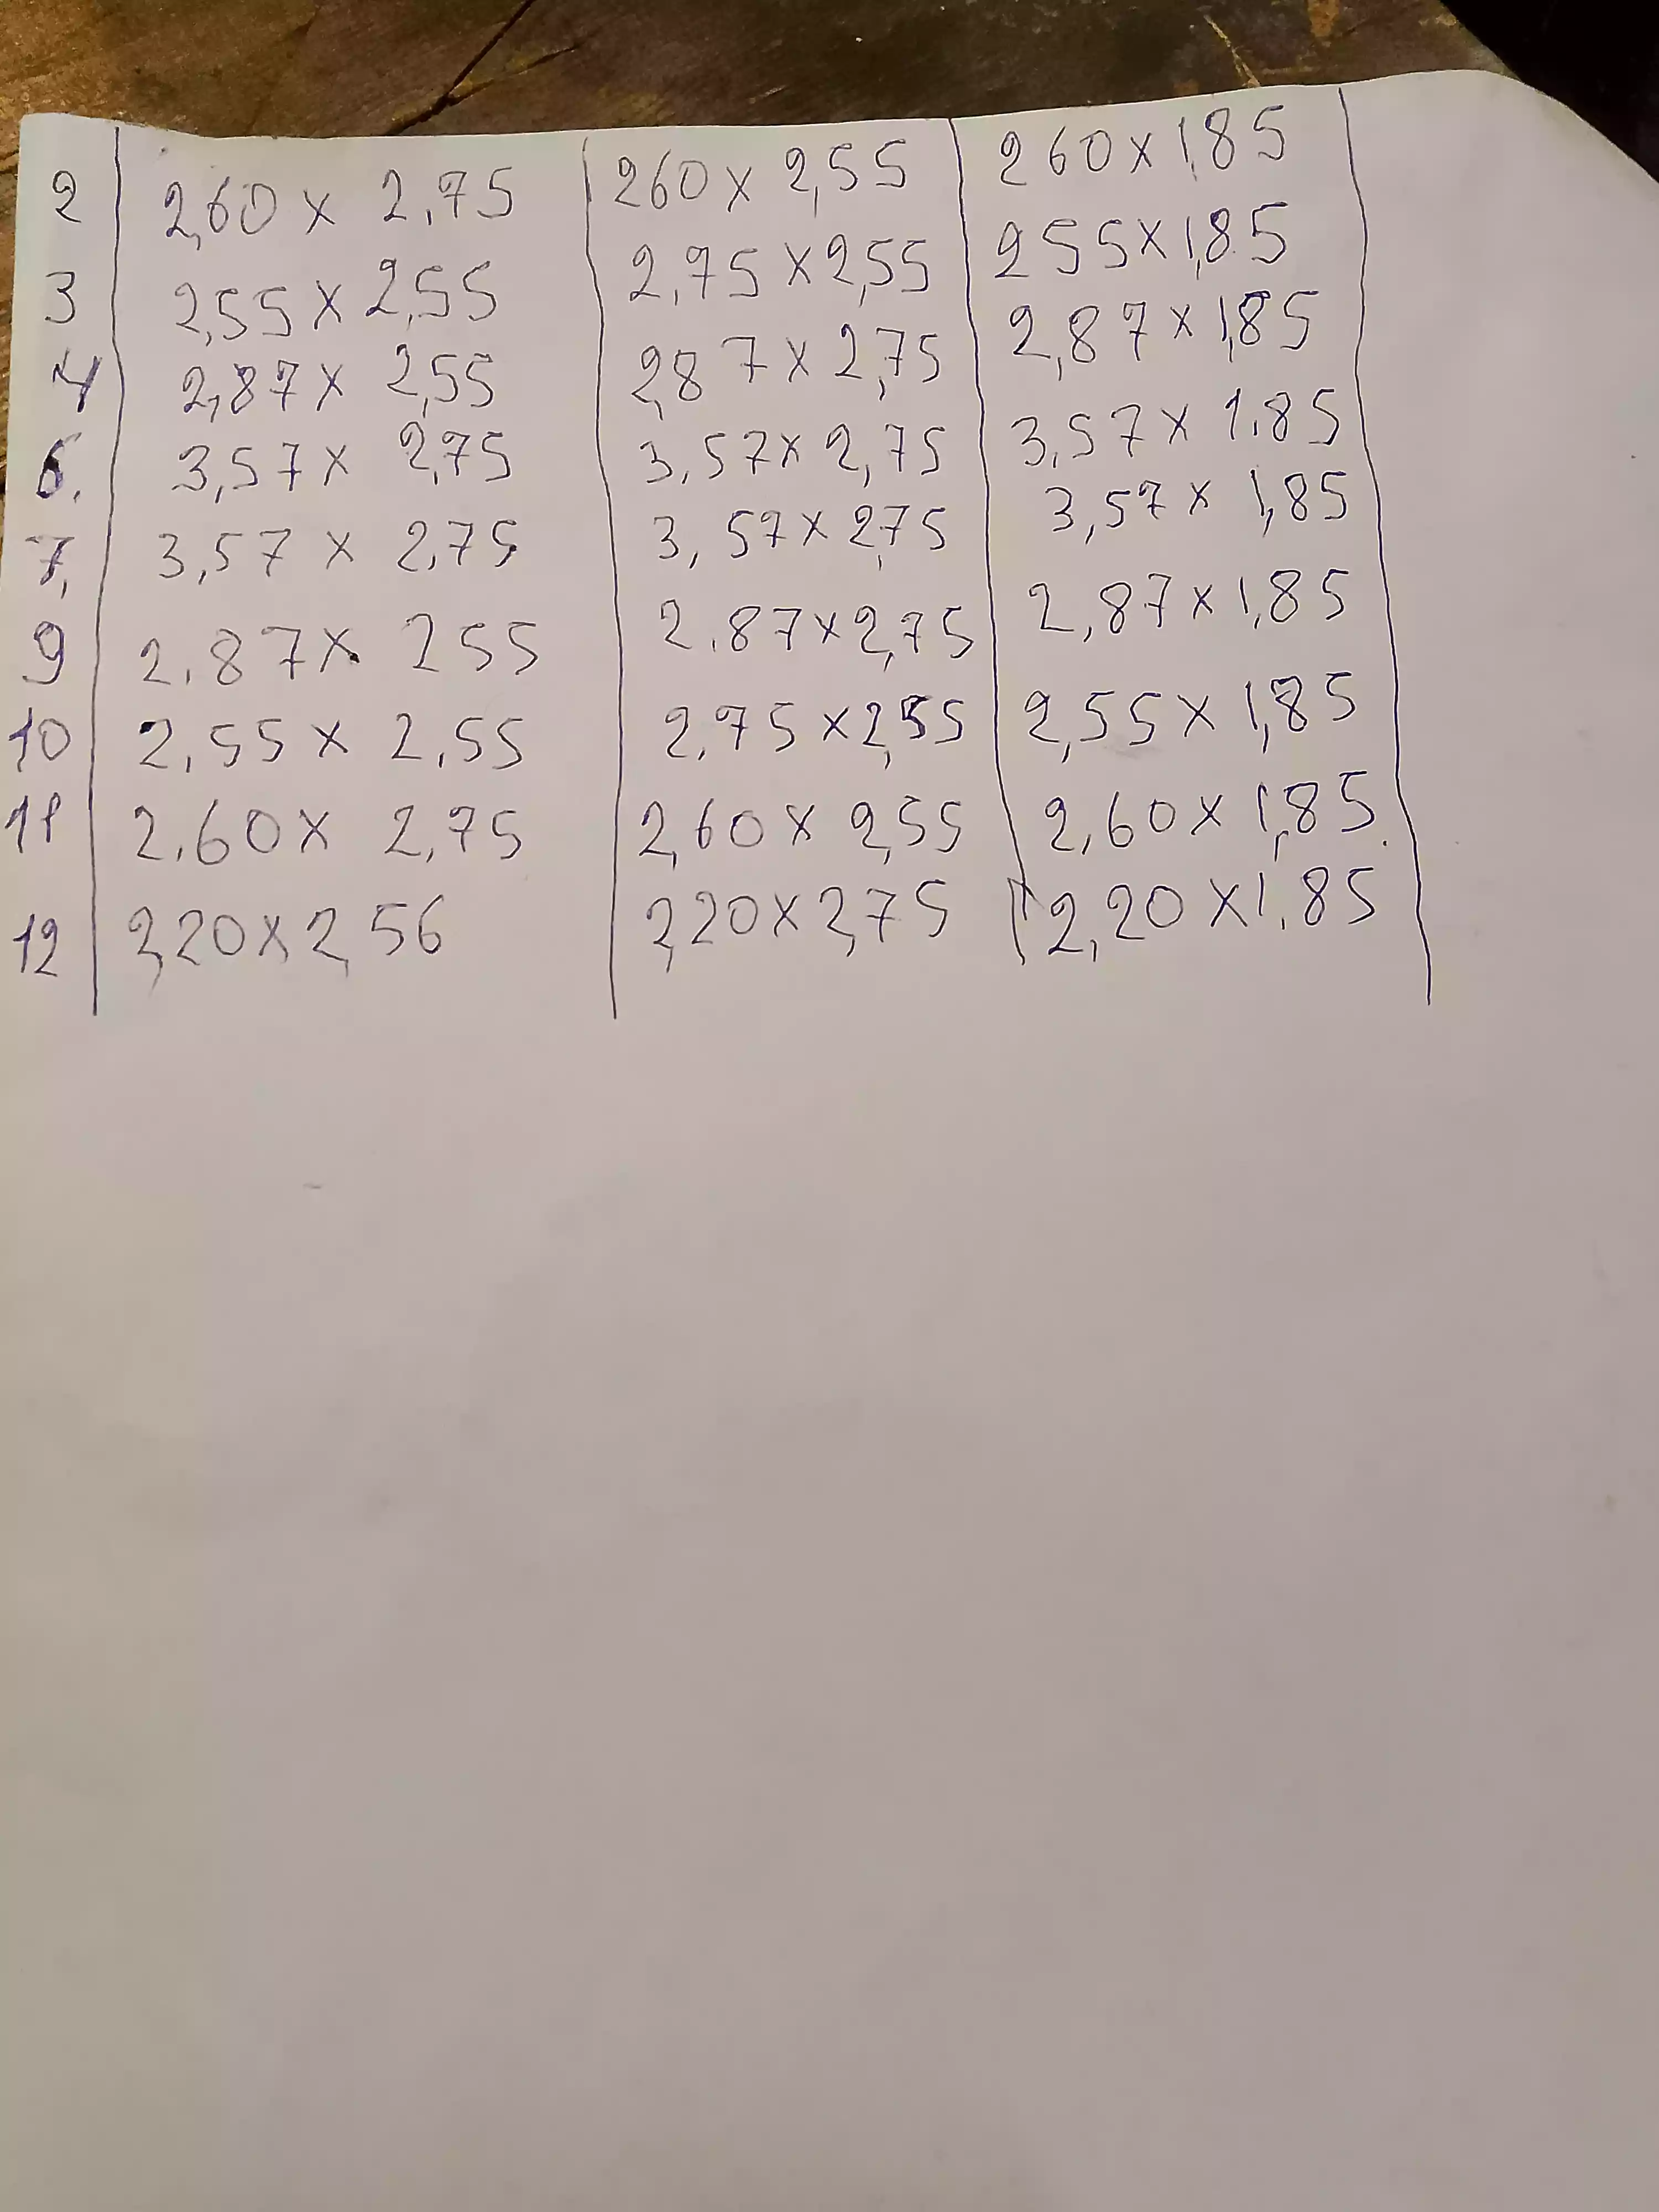 2 2,60 x 2,75 260 x 2,55 260 x 1,85
3 2,55 x 2,55 2,75 x 2,55 255 x 1,85
4 2,87 x 2,55 2,87 x 2,75 2,87 x 1,85
6. 3,57 x 2,75 3,57 x 2,75 3,57 x 1.85
7, 3,57 x 2,75 3,57 x 2,75 3,57 x 1,85
9 2.87 x 255 2.87 x 2,75 2,87 x 1,85
10 2,55 x 2,55 2,75 x 2,55 2,55 x 1,85
11 2,60 x 2,75 2,60 x 2,55 2,60 x 1,85
12 2,20 x 2,56 2,20 x 2,75 2,20 x 1.85